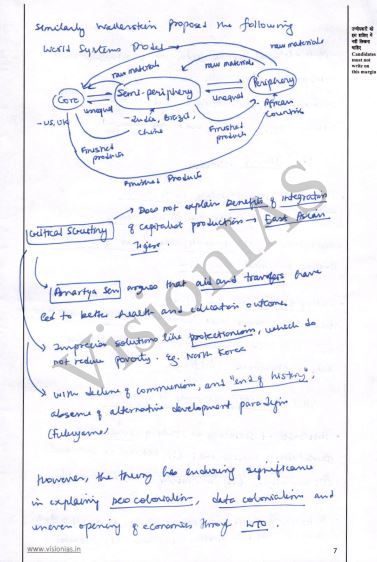 Similarly Wallerstein proposed the following
World Systems Model →
raw materials
raw materials
raw materials
Core
Semi-periphery
Periphery
unequal
unequal
- US, UK
- India, Brazil,
China
- African
Countries
Finished
products
Finished
products
Finished Products
Critical Scrutiny
→ Does not explain benefits of integration
of capitalist production → East Asian
Tigers.
Amartya Sen argues that aid and transfers have
led to better health and education outcome
Imprecise solutions like protectionism, which do
not reduce poverty. eg. North Korea
With decline of communism, and "end of history",
absense of alternative development paradigm
(Fukuyama)
However, the theory has enduring significance
in explaining neo colonialism, data colonialism and
uneven opening of economies through WTO.
www.visionias.in
7
VisionIAS
उम्मीदवारों को
इस हाशिए में
नहीं लिखना
चाहिए
Candidates
must not
write on
this margin